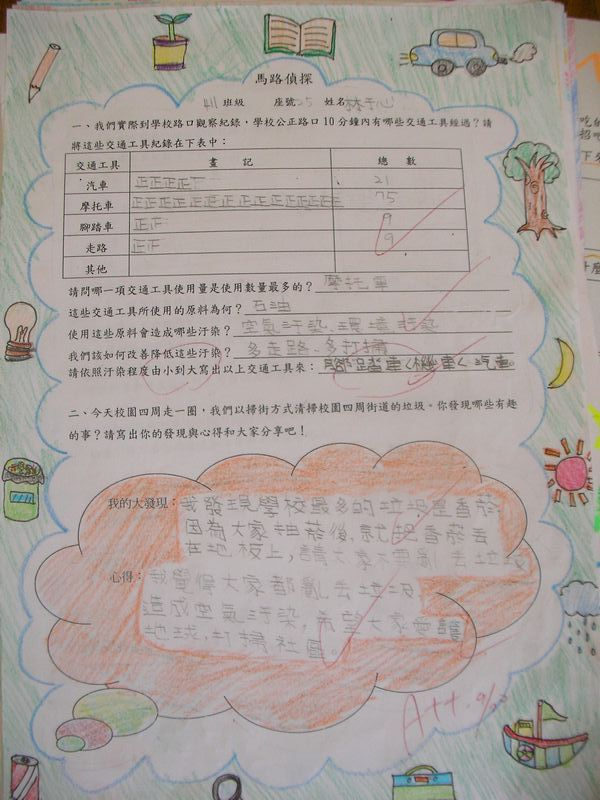 馬路偵探
411班級 座號25 姓名林于心
一、我們實際到學校路口觀察紀錄,學校公正路口10分鐘內有哪些交通工具經過?請
將這些交通工具紀錄在下表中:
交通工具 畫記 總數
汽車 正正正正下 21
摩托車 正正正正正正正正正正正正正正正 75
腳踏車 正正 9
走路 正正 9
其他
請問哪一項交通工具使用量是使用數量最多的?摩托車
這些交通工具所使用的原料為何?石油
使用這些原料會造成哪些汙染?空氣汙染、環境汙染
我們該如何改善降低這些汙染?多走路、多打掃
請依照汙染程度由小到大寫出以上交通工具來:腳踏車<機車<汽車。
二、今天校園四周走一圈,我們以掃街方式清掃校園四周街道的垃圾。你發現哪些有趣
的事?請寫出你的發現與心得和大家分享吧!
我的大發現:我發現學校最多的垃圾是香菸
因為大家抽菸後,就把香菸丟
在地板上,請大家不要亂丟垃圾
心得:我覺得大家都亂丟垃圾
造成空氣汙染,希望大家愛護
地球,打掃社區。
A++ 9/20